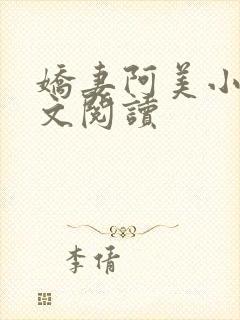 嬌妻阿美小
文閱讀
李倩